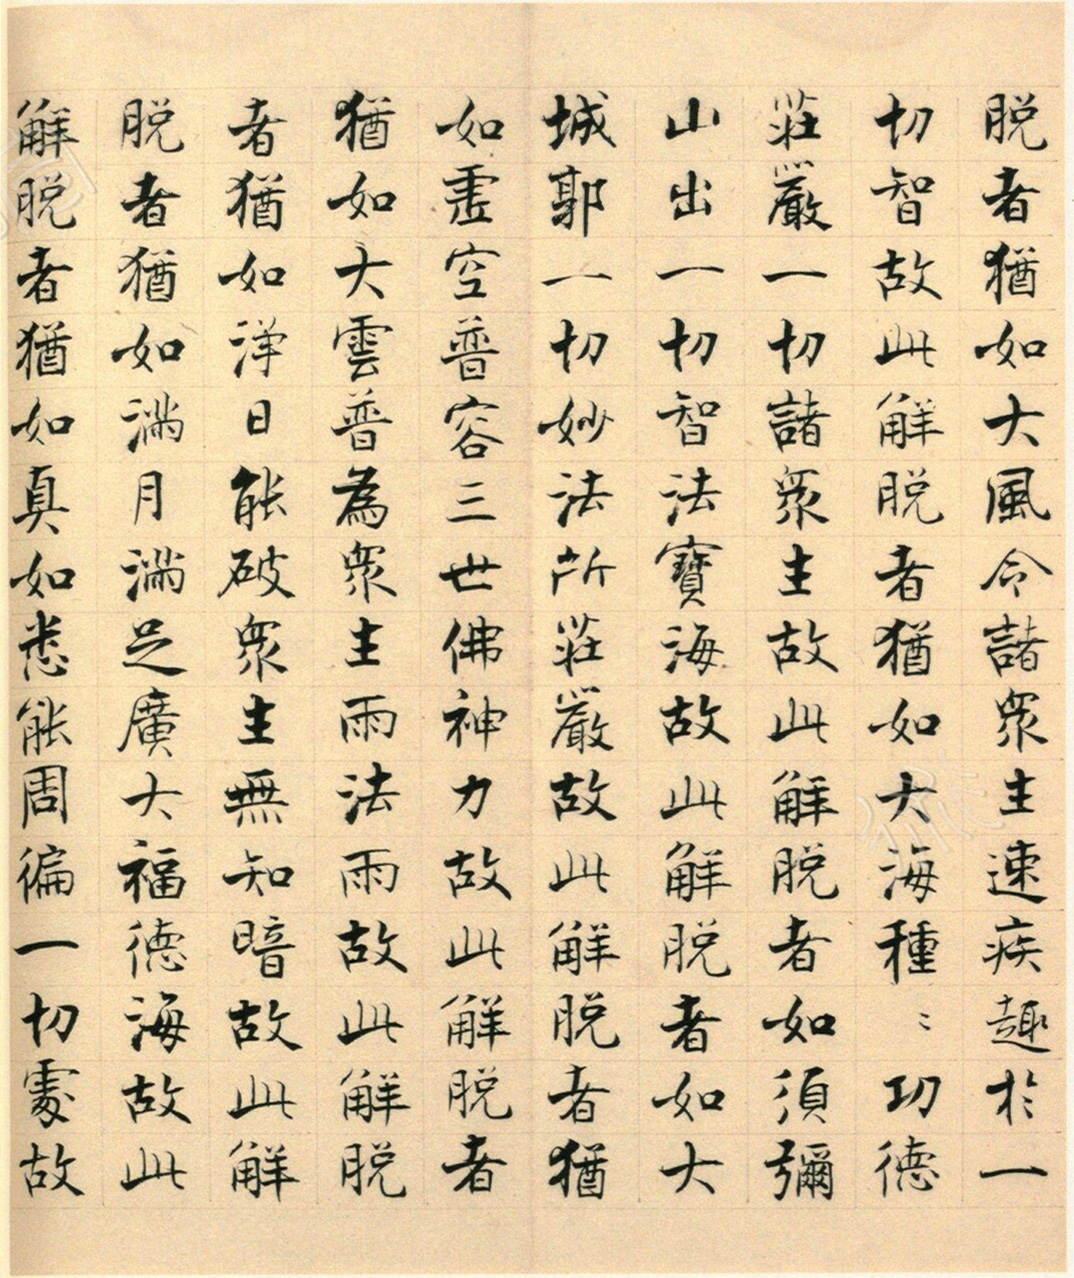 脱者猶如大風令諸衆生速疾趣於一
切智故此解脱者猶如大海種〻功德
莊嚴一切諸衆生故此解脱者如須彌
山出一切智法寶海故此解脱者如大
城郭一切妙法所莊嚴故此解脱者猶
如虛空普容三世佛神力故此解脱者
猶如大雲普為衆生雨法雨故此解脱
者猶如淨日能破衆生無知暗故此解
脱者猶如滿月滿足廣大福德海故此
解脱者猶如真如悉能周徧一切處故